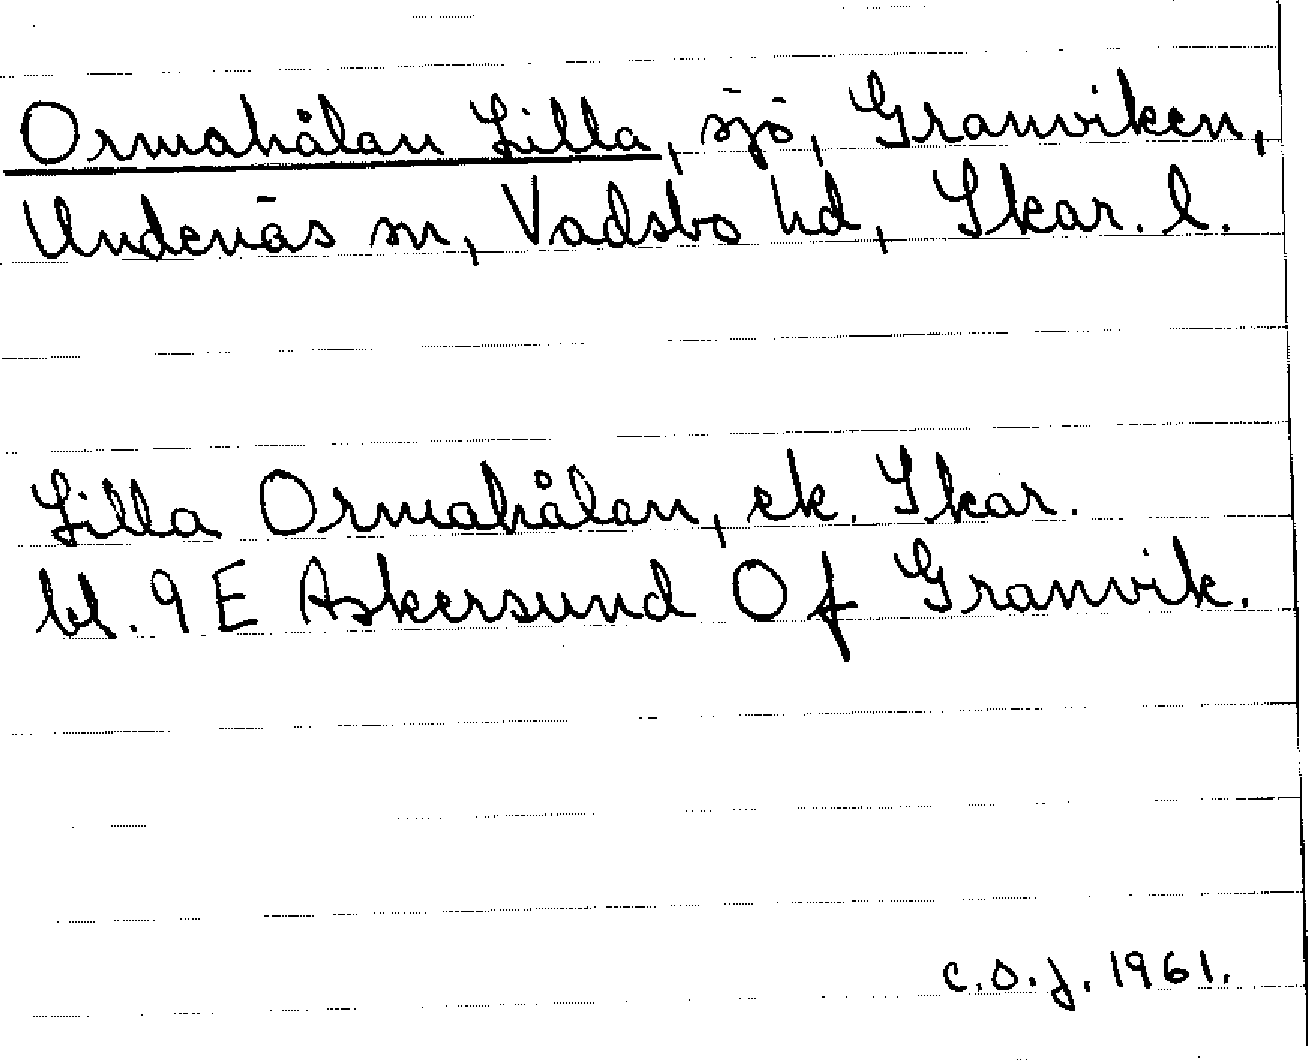 Ormahålan Lilla, sjö, Granviken,
Undenäs sn, Vadsbo hd, Skar. l.
Lilla Ormahålan, ek. Skar.
bl. 9 E Askersund O f Granvik.
c.s.j. 1961.